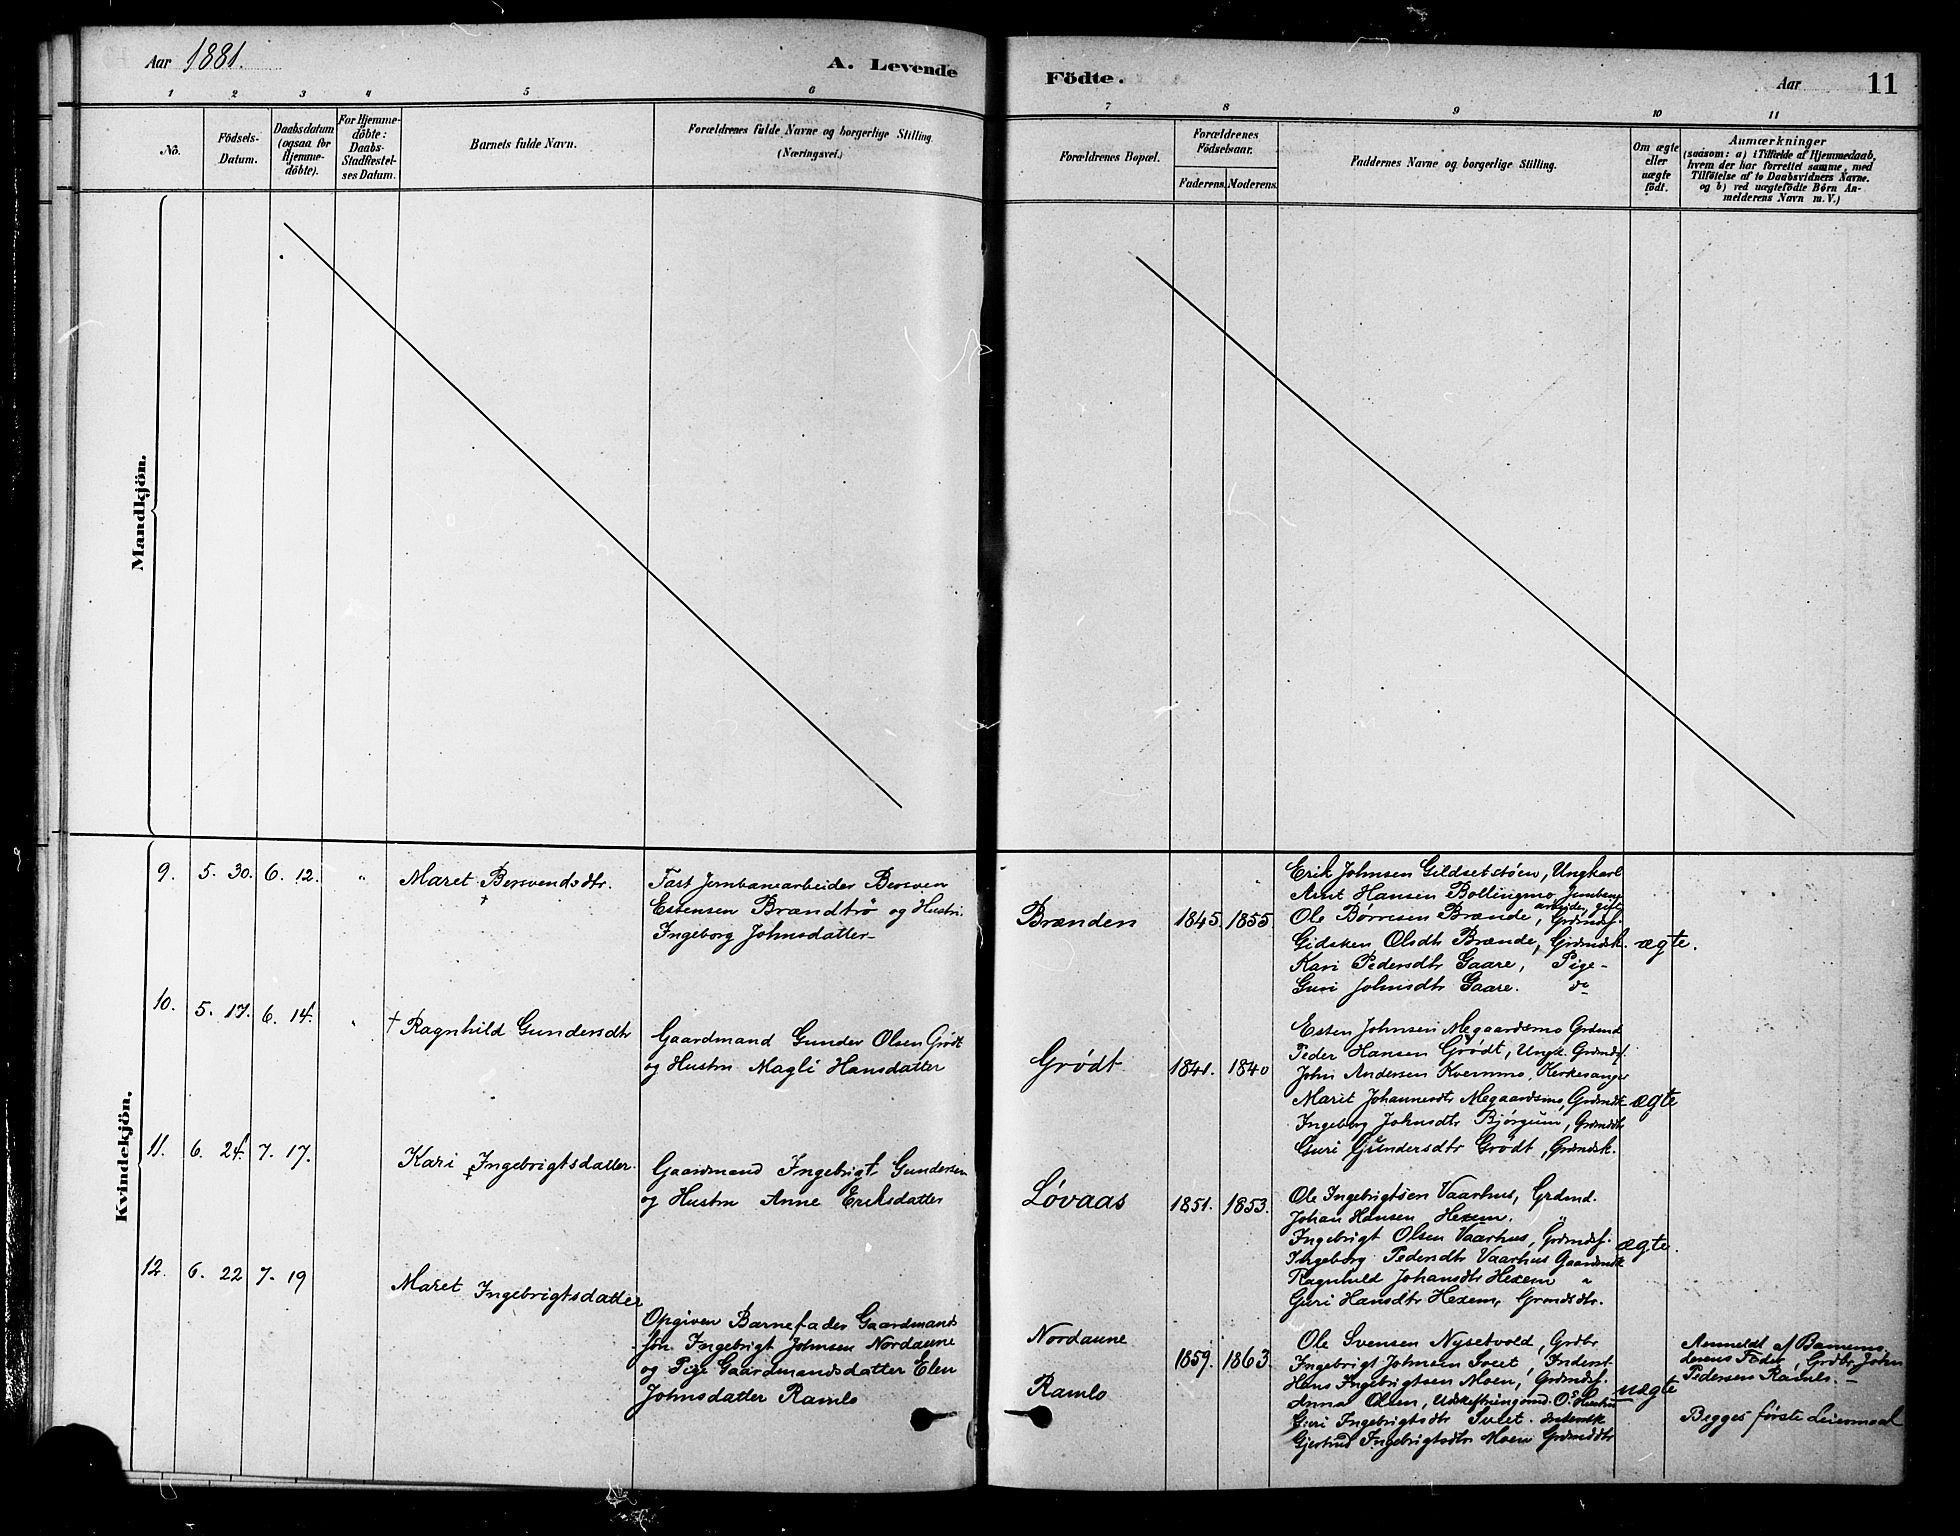 Aar 1881.
A. Levende
Födte.
Aar
11
1
2
3
4
5
6
7
8
9
10
11
No.
Födsels-
Datum.
Daabsdatum
(ogsaa for
Hjemme-
döbte).
For Hjemme-
döbte:
Daabs-
Stadfæstel-
ses Datum.
Barnets fulde Navn.
Forældrenes fulde Navne og borgerlige Stilling
(Næringsvei.)
Forældrenes Bopæl.
Forældrenes
Födselsaar.
Faderens.
Moderens.
Faddernes Navne og borgerlige Stilling.
Om ægte
eller
uægte
födt.
Anmærkninger
(saasom: a) i Tilfælde af Hjemmedaab,
hvem der har forrettet samme, med
Tilföielse af to Daabsvidners Navne.
og b) ved uægtefödte Börn An-
melderens Navn m. V.)
Mandkjön.
Kvindekjön.
9.
5. 30.
6. 12.
"
Maret Bersvendsdtr.
Fast Jernbanearbeider Bersven
Estensen Brændtrø og Hustru
Ingeborg Johnsdatter
Brænden
1845.
1855.
Erik Johnsen Gildsetstøen, Ungkarl
Arnt Hansen Bollingmo, Jernbane
arbeider, gift
Ole Børresen Brænde, Grdmdsf.
Gidsken Olsdtr Brænde, Grdmdsk.
Kari Pedersdtr Gaare, Pige
Guri Johnsdtr Gaare. do
ægte.
10.
5. 17.
6. 14.
"
† Ragnhild Gundersdtr
Gaardmand Gunder Olsen Grødt
og Hustru Magli Hansdatter
Grødt
1841.
1840
Esten Johnsen Megaardsmo Grdmd
Peder Hansen Grødt, Ungk. Grdmdsf.
John Andersen Kvernmo, Kirkesanger
Marit Johannesdtr Megaardsmo, Grdmdk
Ingeborg Johnsdtr Bjørgum, Grdmdsdtr
Guri Gundersdtr Grødt, Grdmdsk.
ægte
11.
6. 24.
7. 17.
Kari Ingebrigtsdatter
Gaardmand Ingebrigt Gundersen
og Hustru Anne Eriksdatter
Løvaas
1851.
1853.
Ole Ingebrigtsen Vaarhus, Grdmd.
Johan Hansen Hexem. "
Ingebrigt Olsen Vaarhus, Grdmdsf.
Ingeborg Pedersdtr Vaarhus Gaardmdsk
Ragnhild Johansdtr Hexem "
Guri Hansdtr Hexem, Grdmdsdtr.
ægte.
12.
6. 22
7. 19
Maret Ingebrigtsdatter
Opgiven Barnefader Gaardmands
søn Ingebrigt Johnsen Nordaune
og Pige Gaardmandsdatter Elen
Johnsdatter Ramlo
Nordaune
Ramlo
1859.
1863
Ole Svensen Nysetvold, Grdbr
Ingebrigt Johnsen Svet, Inderst
Hans Ingebrigtsen Moen, Grdmdsf.
Anna Olsen, Udskiftningsmd. O's Hustru
Guri Ingebrigtsdtr Svet. Inderstk
Gjertrud Ingebrigtsdtr Moen Grdmddtr
uægte
Anmeldt af Barnemo-
derens Fader, Grdbr. John
Pedersen Ramlo.
Begges første Leiermaal